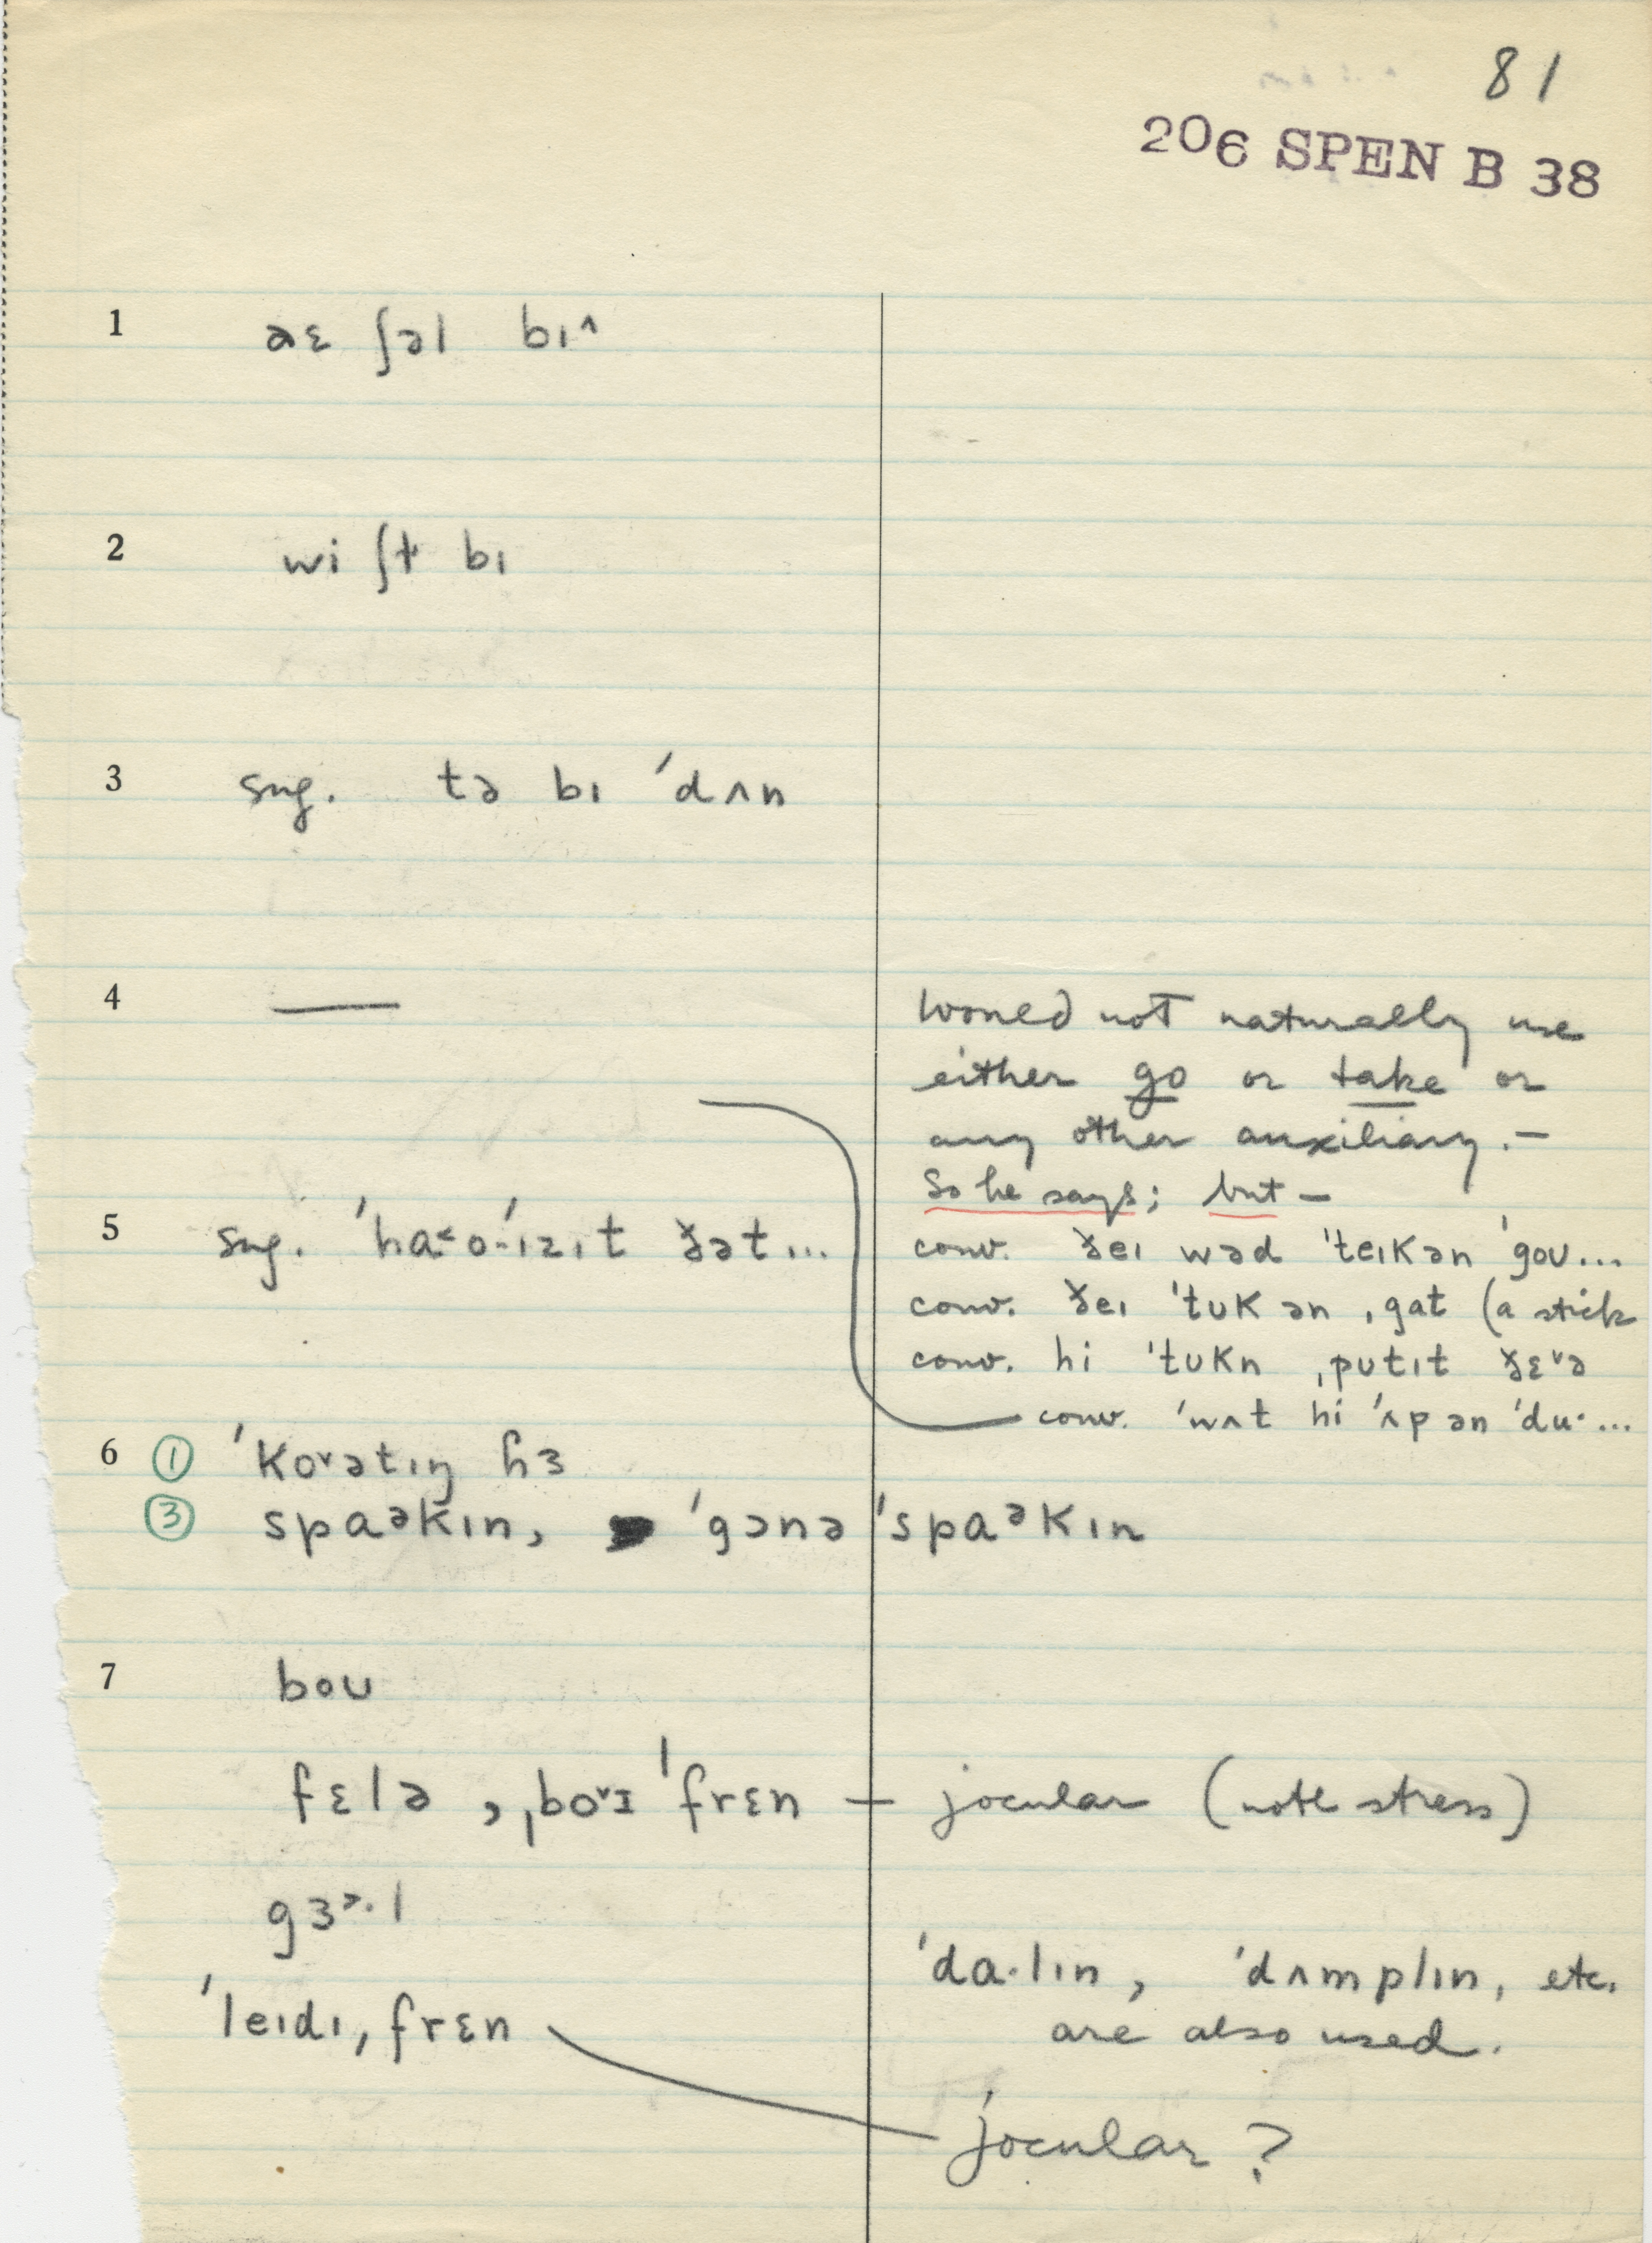 81
206 SPEN B 38
1 aɛ ʃəl bɪ^
2 wi ʃt bɪ
3 sug. tə bɪ ˈdʌn
4 —
Would not naturally use
either go or take or
any other auxiliary. —
So he says; but —
5 sug. ˈha˂oˈɪzɪt ðət...
conv. ðeɪ wəd ˈteɪkən ˈgoʊ...
conv. ðeɪ ˈtʊk ən ˌgat (a stick
conv. hi ˈtʊkn ˌpʊtɪt ðɛ˅ə
conv. ˈwʌt hi ˈʌp ən ˈdu· ...
6 ① ˈko˅ətɪŋ hɜ
③ spaᵊkɪn, ˈgɔnə ˈspaᵊkɪn
7 boʊ
fɛlə , ˌbo˅ɪ ˈfrɛn — jocular (note stress)
gɜ˃·l
ˈda·lɪn, ˈdʌmplɪn, etc.
ˈleɪdɪ, frɛn
are also used.
jocular ?